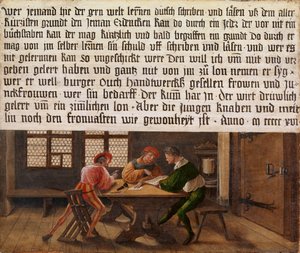 wer jemand hie der gern welt lernen dütsch schriben und läsen uß dem aller
kürtzisten grundt den jeman erdencken kan do durch ein jeder der vor nit ein
büchstaben kan der mag kürtzlich und bald begriffen ein grundt do durch er
mag von jm selbs lernen sin schuld uff schriben und läsen und wer es
nit gelernnen kan so ungeschickt were Den will jch um nüt und ver
geben gelert haben und gantz nüt von jm zů lon nemen er syg
wer er well burger ouch handtwercks gesellen frowen und ju
nckfrouwen wer sin bedarff der kum har jn der wirt drüwlich
gelert um ein zimlichen lon · Aber die jungen knaben und meit
lin noch den fronuasten wie gewonheyt ist · Anno · m ccccc xvi